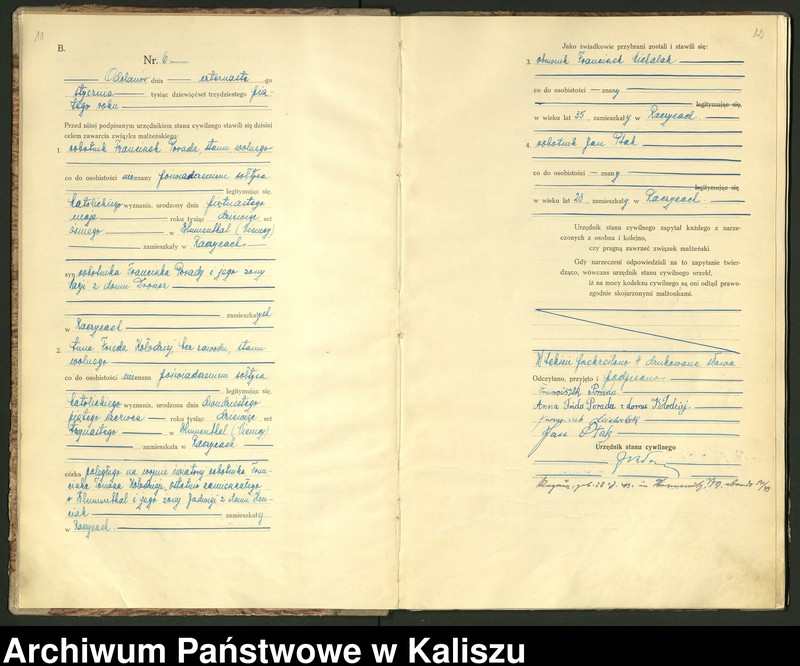 11
B.
Nr. 6
Odolanów dnia czternasta -go
stycznia tysiąc dziewięćset trzydziestego pią-
tego roku
Przed niżej podpisanym urzędnikiem stanu cywilnego stawili się dzisiaj
celem zawarcia związku małżeńskiego:
1. robotnik Franciszek Porada, stanu wolnego
co do osobistości nieznany poświadczeniem sołtysa
legitymując się,
katolickiego wyznania, urodzony dnia piętnastego
maja roku tysiąc dziewięć set
ósmego w Blumenthal (Niemcy)
zamieszkały w Raczycach
syn robotnika Franciszka Porady i jego żony
z domu
zamieszkałych
w Raczycach
2. Anna Frieda Kołodziej, bez zawodu, stanu
wolnego
co do osobistości nieznana poświadczeniem sołtysa
legitymując się,
katolickiego wyznania, urodzona dnia dwudziestego
piątego czerwca roku tysiąc dziewięć set
trzynastego w Blumenthal (Niemcy)
zamieszkała w Raczycach
córka poległego na wojnie światowej robotnika Fran-
ciszka Tomasza Kołodzieja, ostatnio zamieszkałego
w Blumenthal i jego żony Jadwigi z domu
zamieszkały
w Raczycach
12
Jako świadkowie przybrani zostali i stawili się:
3. Franciszek
co do osobistości — znany
legitymując się,
w wieku lat 35, zamieszkały w Raczycach
4. robotnik Jan Ptak
co do osobistości — znany
legitymując się,
w wieku lat 23, zamieszkały w Raczycach
Urzędnik stanu cywilnego zapytał każdego z narze-
czonych z osobna i kolejno,
czy pragną zawrzeć związek małżeński.
Gdy narzeczeni odpowiedzieli na to zapytanie twier-
dząco, wówczas urzędnik stanu cywilnego orzekł,
iż na mocy kodeksu cywilnego są oni odtąd prawo-
zgodnie skojarzonymi małżonkami.
W tekście przekreślono 4 drukowane słowa
Odczytano, przyjęto i podpisano
Franciszek Porada
Anna Porada z domu Kołodziej
Franciszek
Jan Ptak
Urzędnik stanu cywilnego
Archiwum Państwowe w Kaliszu